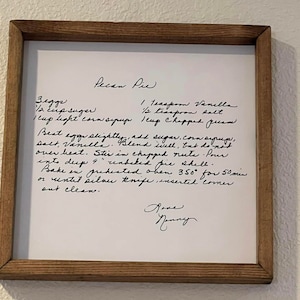 Pecan Pie
3 eggs 1 Teaspoon Vanilla
½ cup sugar ½ teaspoon salt
1 cup light corn syrup 1 cup chopped pecans
Beat eggs slightly, add sugar, corn syrup,
salt, Vanilla. Blend well, but do not
over beat. Stir in chopped nuts. Pour
into deep 9" unbaked pie shell.
Bake in preheated oven 350° for 50 min
or until silver knife inserted comes
out clean.
Love
Nanny